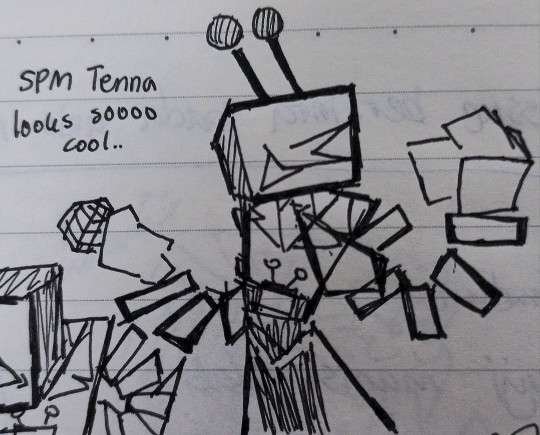 SPM Tenna
looks soooo
cool..